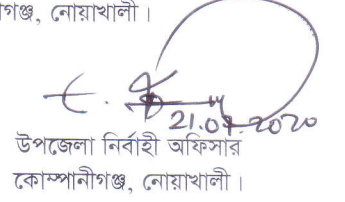 গঞ্জ, নোয়াখালী।
21.07.2020
উপজেলা নির্বাহী অফিসার
কোম্পানীগঞ্জ, নোয়াখালী।